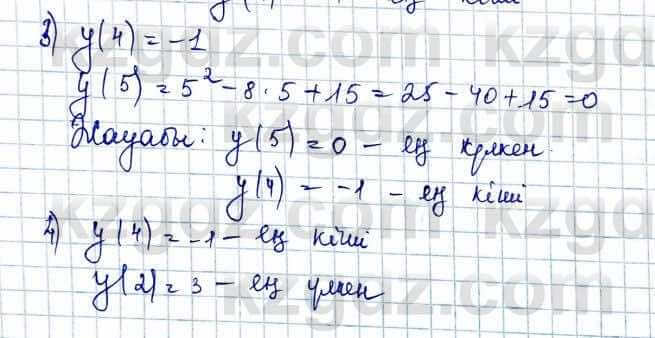 3) y(4) = -1
y(5) = 5² - 8·5 + 15 = 25 - 40 + 15 = 0
Жауабы: y(5) = 0 - ең үлкен.
y(4) = -1 - ең кіші
4) y(4) = -1 - ең кіші
y(2) = 3 - ең үлкен
kzgdz.com